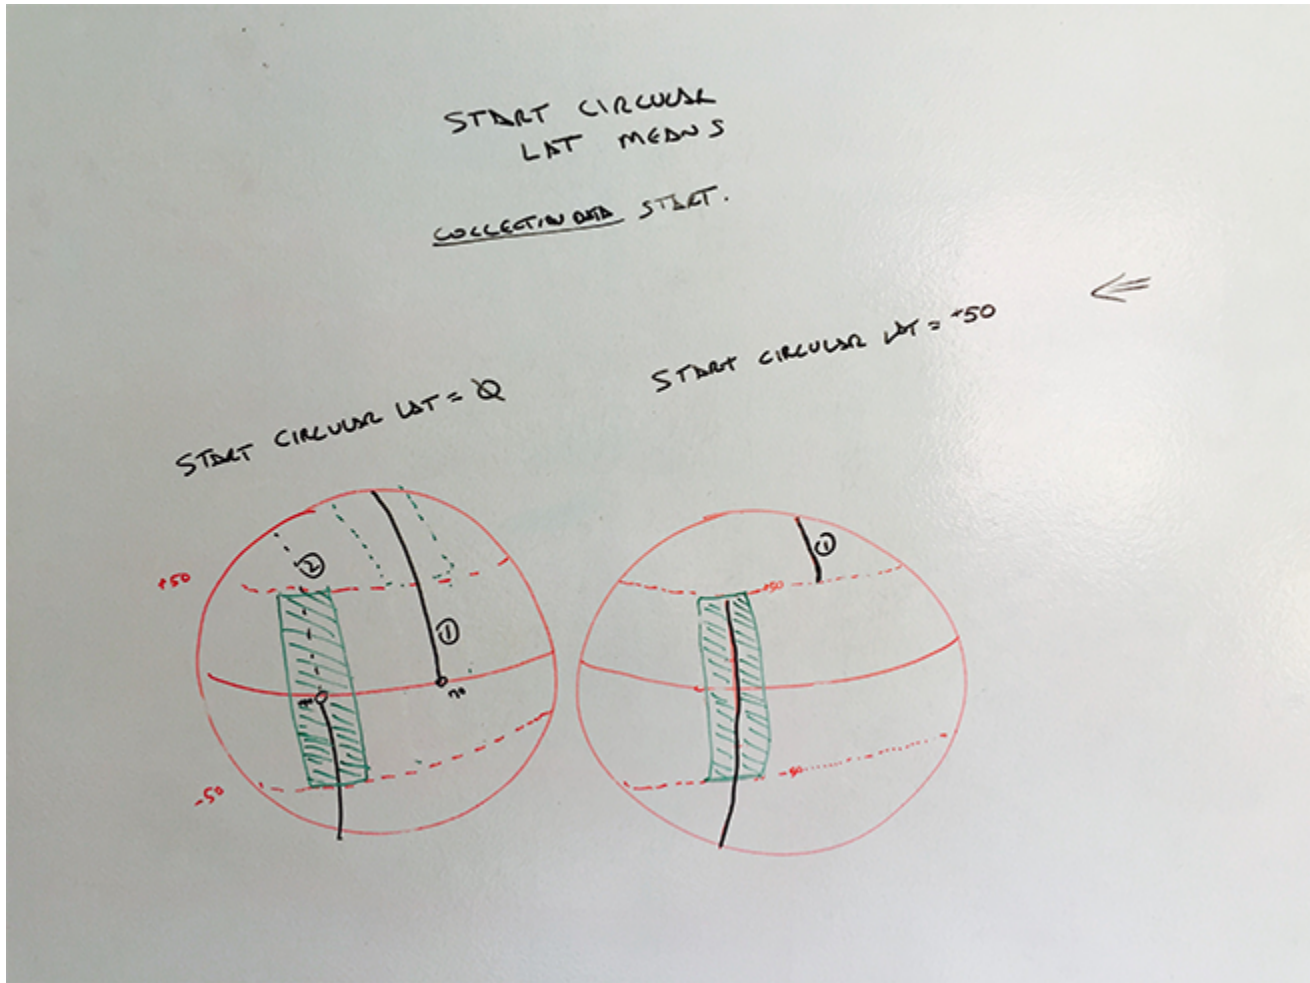 START CIRCULAR
LAT MEANS
COLLECTION DATA START.
START CIRCULAR LAT = 0
START CIRCULAR LAT = +50
+50
-50
2
1
+50
-50
1